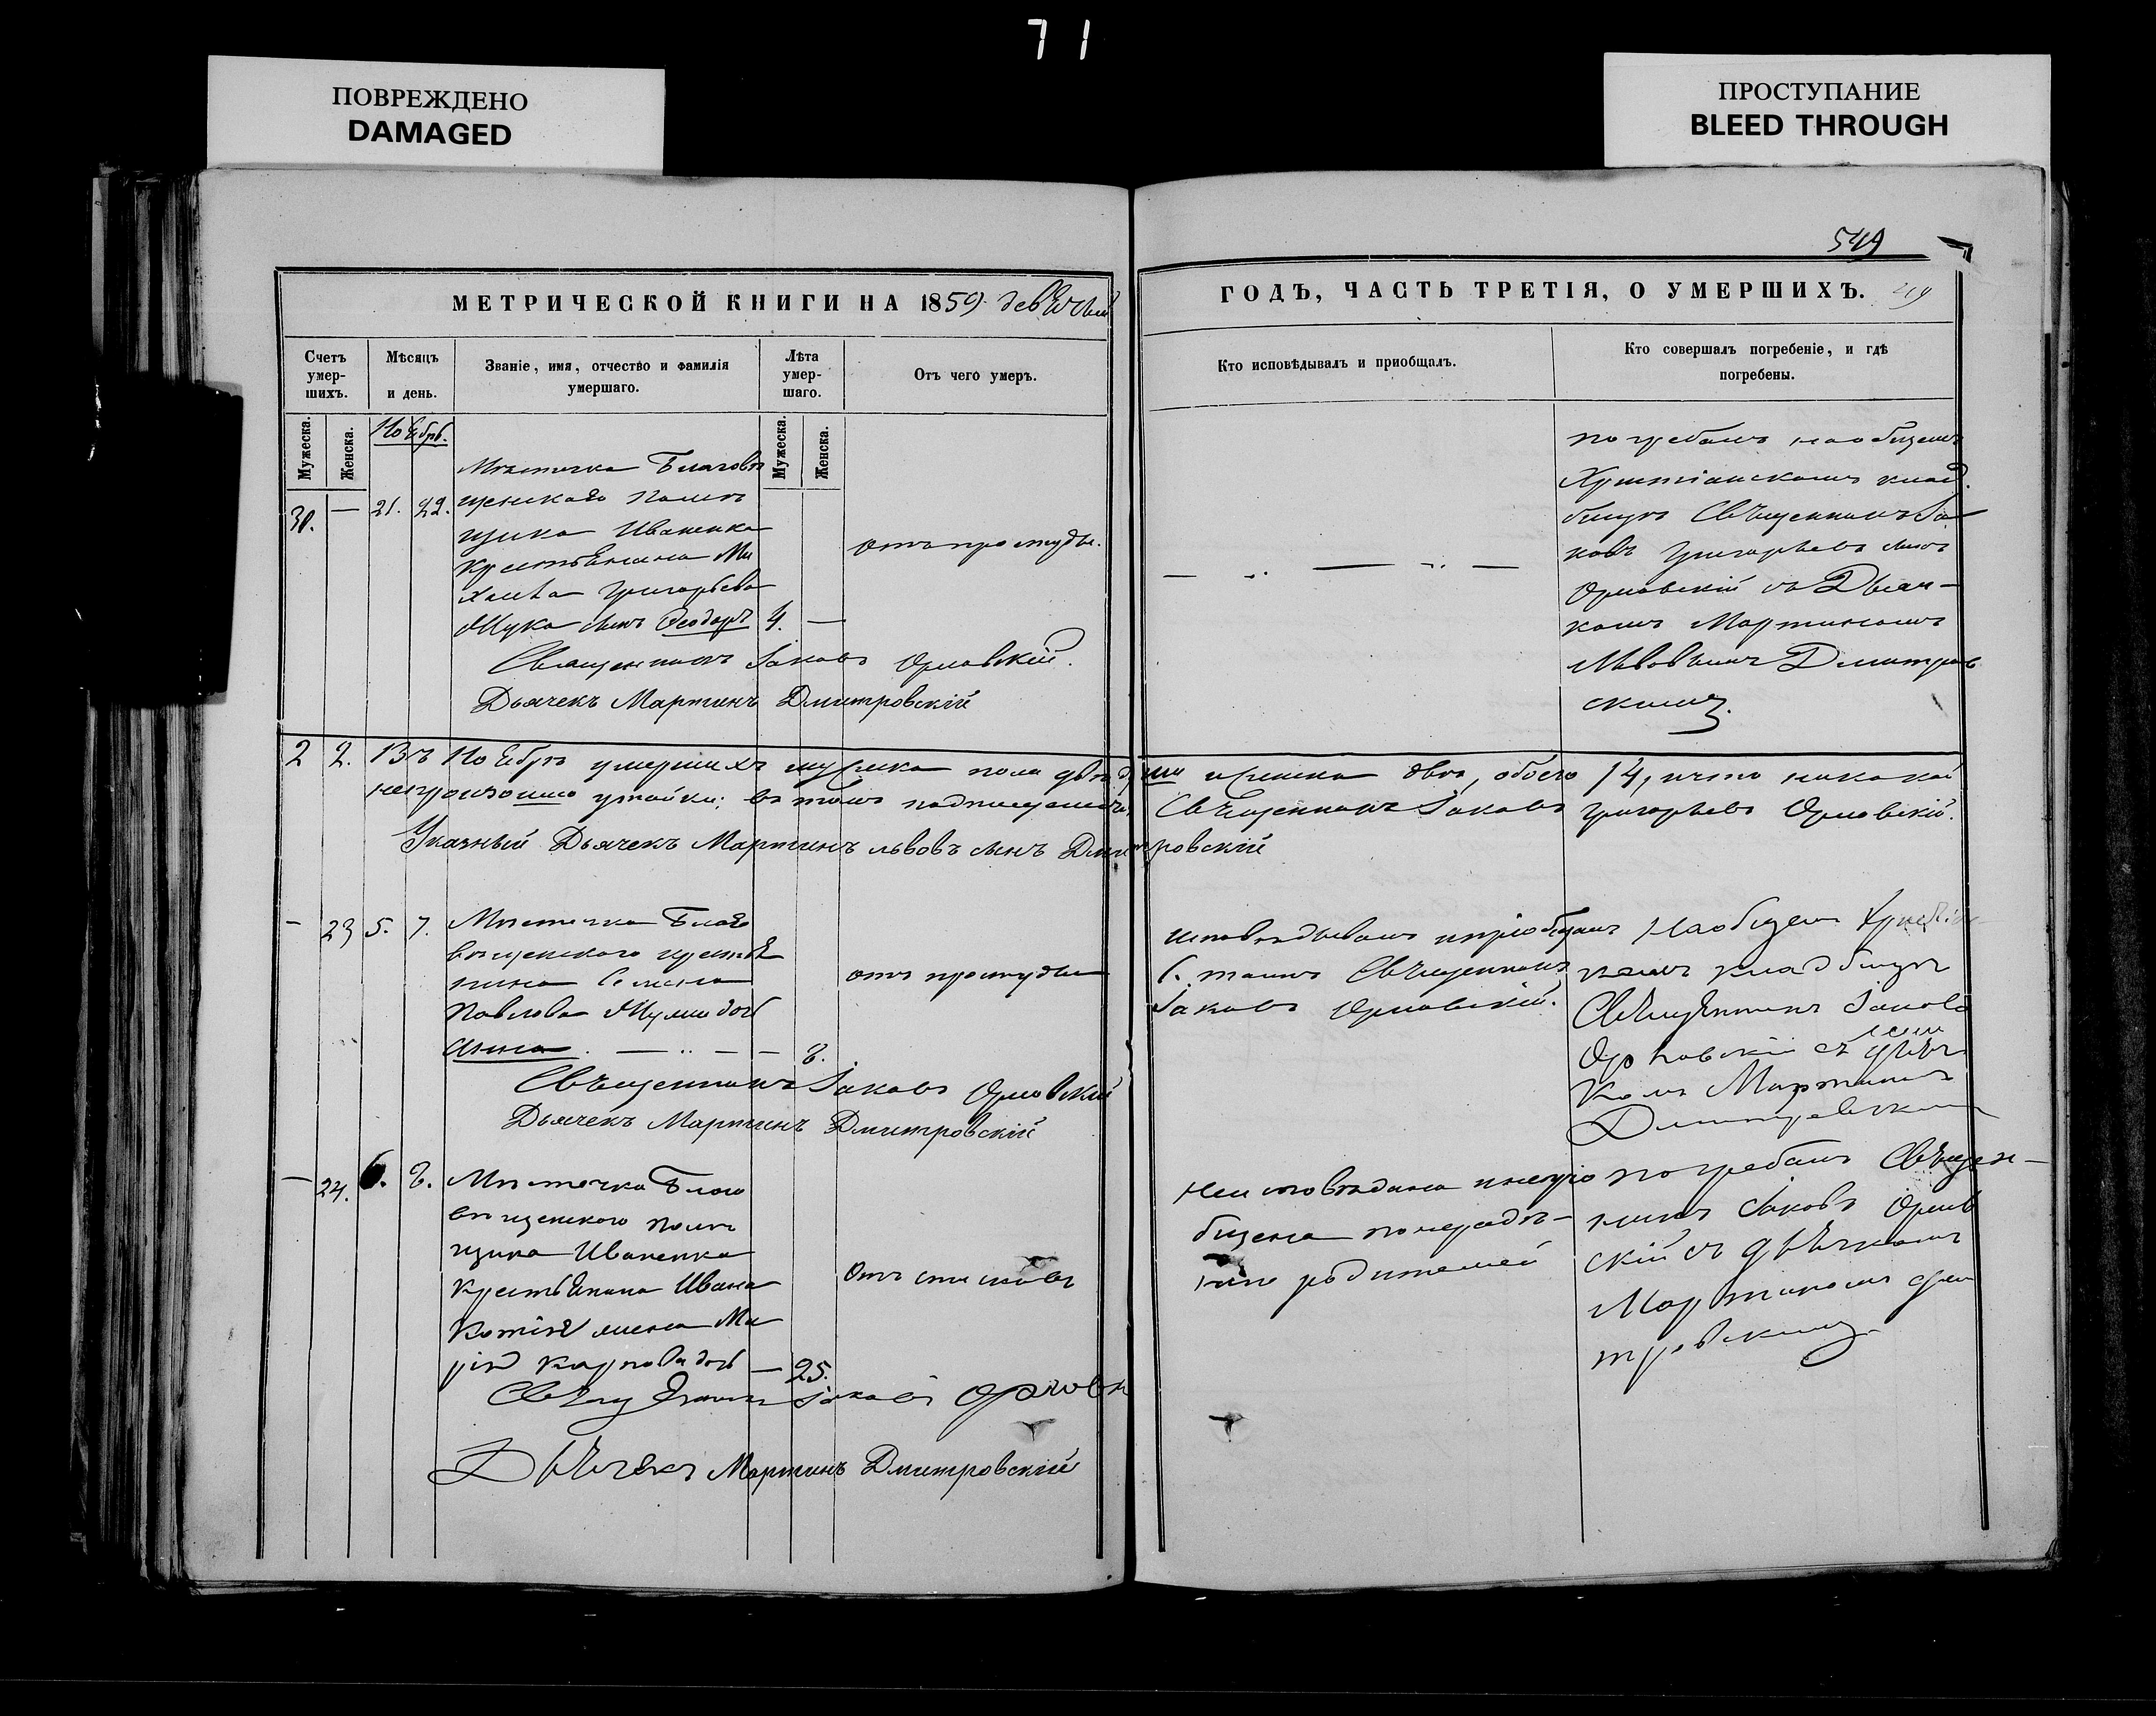 71
ПОВРЕЖДЕНО
DAMAGED
ПРОСТУПАНИЕ
BLEED THROUGH
549
МЕТРИЧЕСКОЙ КНИГИ НА 1859 девятый
ГОДЪ, ЧАСТЬ ТРЕТІЯ, О УМЕРШИХЪ.
Счетъ умер-шихъ.
Мѣсяцъ и день.
Званіе, имя, отчество и фамилія умершаго.
Лѣта умер-шаго.
Отъ чего умеръ.
Кто исповѣдывалъ и приобщалъ.
Кто совершалъ погребеніе, и гдѣ погребены.
Мужеска.
Женска.
Мужеска.
Женска.
Ноябрь.
30. — 21. 22.
Мѣстечка Благовѣ
щенскаго помѣ
щика Иваненка
крестьянина Ми
хаила Григорьева
Жука сынъ Феодоръ 4. —
отъ простуды.
погребалъ на общемъ
Христіанскомъ клад
бищѣ Священникъ Іа
ковъ Григорьевъ сынъ
Орловскій съ Дьяч-
комъ Мартиномъ
Львовымъ Дмитров
скимъ.
Священникъ Іаковъ Орловскій.
Дьячекъ Мартинъ Дмитровскій
2 2. Въ Ноябрѣ умершихъ мужеска пола двѣ души и женска двѣ, обоего 4, и что никакой
непроизошло утайки; въ томъ подписуемся Священникъ Іаковъ Григорьевъ Орловскій.
Указный Дьячекъ Мартинъ Львовъ сынъ Дмитровскій
— 23 5. 7.
Мѣстечка Благо
вѣщенского крестья
нина Семена
Павлова дочь
Анна. 8.
отъ простуды
исповѣдывалъ и пріобщалъ
С. таинъ Священникъ
Іаковъ Орловскій.
На общемъ Христіан
комъ кладбищѣ
Священникъ Іаковъ
Орловскій съ дьяч
комъ Мартиномъ
Дмитровскимъ
Священникъ Іаковъ Орловскій
Дьячекъ Мартинъ Дмитровскій
— 24. 6. 8.
Мѣстечка Благо
вѣщенского помѣ
щика Иваненка
крестьянина Ивана
Ма
рія дочь — 25.
неисповѣдана и непріо
бщена по нерадѣ-
нію родителей
погребалъ Священ-
никъ Іаковъ Орлов
скій съ дьячкомъ
Мартиномъ Дми
тровскимъ.
Священникъ Іаковъ Орловск
Дьячекъ Мартинъ Дмитровскій